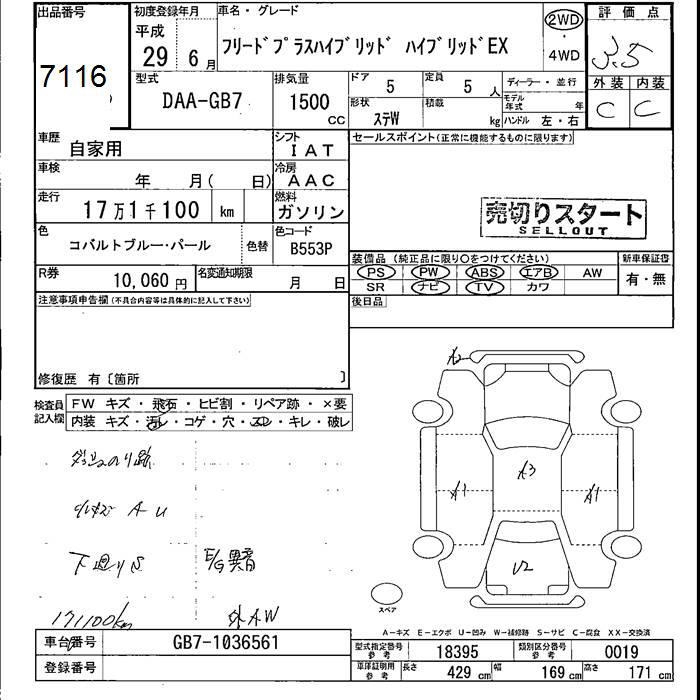 出品番号 初度登録年月 車名・グレード 評価点
7116 平成 29 6月 フリードプラスハイブリッド ハイブリッドEX 2WD ・ 4WD 3.5
型式 DAA-GB7 排気量 1500 CC ドア 5 定員 5人 ディーラー・並行 外装 内装
形状 ステW 積載 kg モデル年式 年 ハンドル 左・右 C C
車歴 自家用 シフト IAT セールスポイント(正常に機能するものに限ります)
車検 年 月( 日) 冷房 AAC
走行 17万1千100 km 燃料 ガソリン 売切りスタート
SELLOUT
色 コバルトブルー・パール 色替 色コード B553P
装備品 (純正品に限り○をつけてください) 新車保証書
R券 10,060円 名変通知期限 月 日 PS PW ABS エアB AW 有・無
SR ナビ TV カワ
注意事項申告欄(不具合内容等は具体的に記入して下さい) 後日品
修復歴 有〔箇所 〕
検査員記入欄 FW キズ ・ 飛石 ・ ヒビ割 ・ リペア跡 ・ ×要
内装 キズ ・ 汚レ ・ コゲ ・ 穴 ・ スレ ・ キレ ・ 破レ
A2
ダッシュのり跡 A3
A1 A1
小キズ A U
下廻りS E/G異音 U2
171100km 外AW スペア
A-キズ E-エクボ U-凹み W-補修跡 S-サビ C-腐食 XX-交換済
車台番号 GB7-1036561 型式指定番号 参考 18395 類別区分番号 参考 0019
登録番号 車庫証明用 参考 長さ 429cm 幅 169cm 高さ 171cm